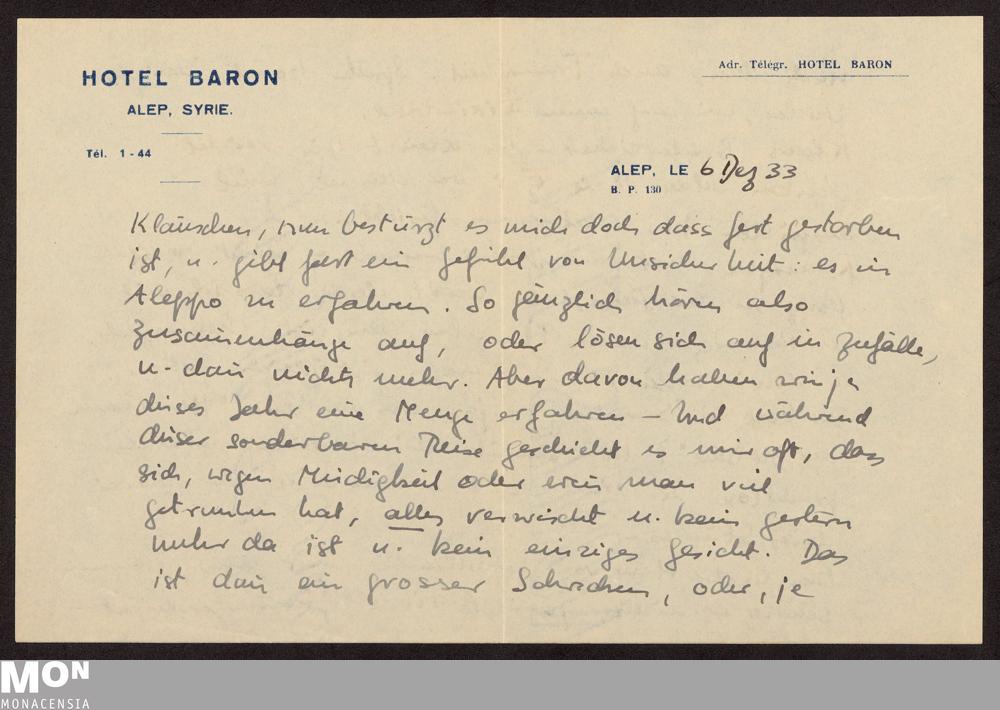 HOTEL BARON
ALEP, SYRIE.
Tél. 1-44
Adr. Télégr. HOTEL BARON
ALEP, LE 6 Dez 33
B. P. 130
Kläuschen, nun bestürzt es mich doch dass Gert gestorben
ist, u. gibt fast ein Gefühl von Unsicherheit: es in
Aleppo zu erfahren. So gänzlich hören also
Zusammenhänge auf, oder lösen sich auf in Zufälle,
u. dann nichts mehr. Aber davon haben wir ja
dieses Jahr eine Menge erfahren – Und während
dieser sonderbaren Reise geschieht es mir oft, dass
sich, wegen Müdigkeit oder wenn man viel
getrunken hat, alles verwischt u. kein gestern
mehr da ist u. kein einziges Gesicht. Das
ist dann ein grosser Schrecken, oder, je
MON
MONACENSIA